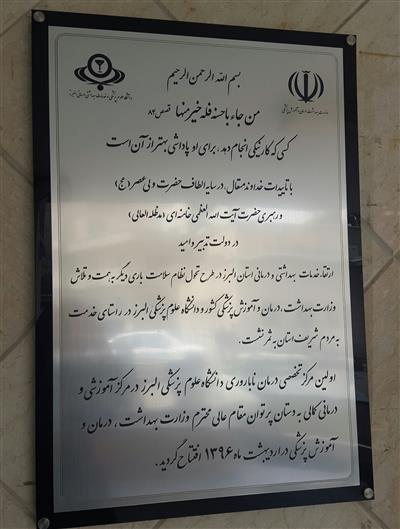 بسم الله الرحمن الرحیم
من جاء باحسنه فله خیر منها قصص ۸۴
کسی که کار نیکی انجام دهد، برای او پاداشی بهتر از آن است
با تاییدات خداوند متعال، در سایه الطاف حضرت ولی عصر (عج)
و رهبری حضرت آیت الله العظمی خامنه ای (مدظله العالی)
در دولت تدبیر و امید
ارتقاء خدمات بهداشتی و درمانی استان البرز در طرح تحول نظام سلامت باری دیگر به همت و تلاش
وزارت بهداشت، درمان و آموزش پزشکی کشور و دانشگاه علوم پزشکی البرز در راستای خدمت
به مردم شریف استان به ثمر نشست.
اولین مرکز تخصصی درمان ناباروری دانشگاه علوم پزشکی البرز در مرکز آموزشی و
درمانی کمالی به دستان پرتوان مقام عالی محترم وزارت بهداشت، درمان و
آموزش پزشکی در اردیبهشت ماه ۱۳۹۶ افتتاح گردید.